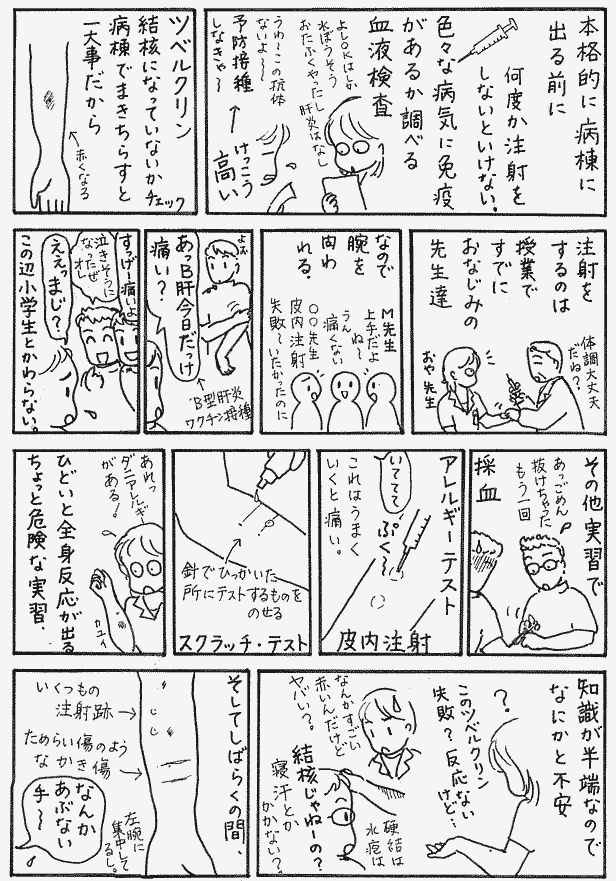 本格的に病棟に
出る前に
何度か注射を
しないといけない。
色々な病気に免疫
があるか調べる
血液検査
よしOKはしか
水ぼうそう
おたふくやったし
肝炎はなし
うわ～この抗体
ないよ～～
予防接種
しなきゃ～
↑
けっこう
高い
ツベルクリン
結核になっていないか
チェック
病棟でまきちらすと
一大事だから
赤くなる
注射を
するのは
授業で
すでに
おなじみの
先生達
体調大丈夫
だね？
おや先生
なので
腕を
問わ
れる。
M先生
上手だよ
ね～
うん
痛くない
○○先生
皮内注射
失敗～いたかったのに
よお
あっB肝今日だっけ
痛い？
B型肝炎
ワクチン接種
すっげー痛いよ
泣きそうに
なったぜ
オレ
ええっまじ？
この辺小学生とかわらない。
その他実習で
採血
あっごめん
抜けちゃった
もう一回
アレルギーテスト
いててて
ぷく～
これはうまく
いくと痛い。
皮内注射
針でひっかいた
所にテストするものを
のせる
スクラッチ・テスト
あれっ
ダニアレルギー
がある！
カユイ
ひどいと全身反応が出る
ちょっと危険な実習。
知識が半端なので
なにかと不安
？
このツベルクリン
失敗？反応ない
けど…
なんかすごい
赤いんだけど
ヤバい？
硬結は
水疱は
結核じゃねーの？
寝汗とか
かかない？
そしてしばらくの間、
いくつもの
注射跡→
ためらい傷のよう
なかき傷
→
左腕に
集中して
るし。
なんか
あぶない
手～